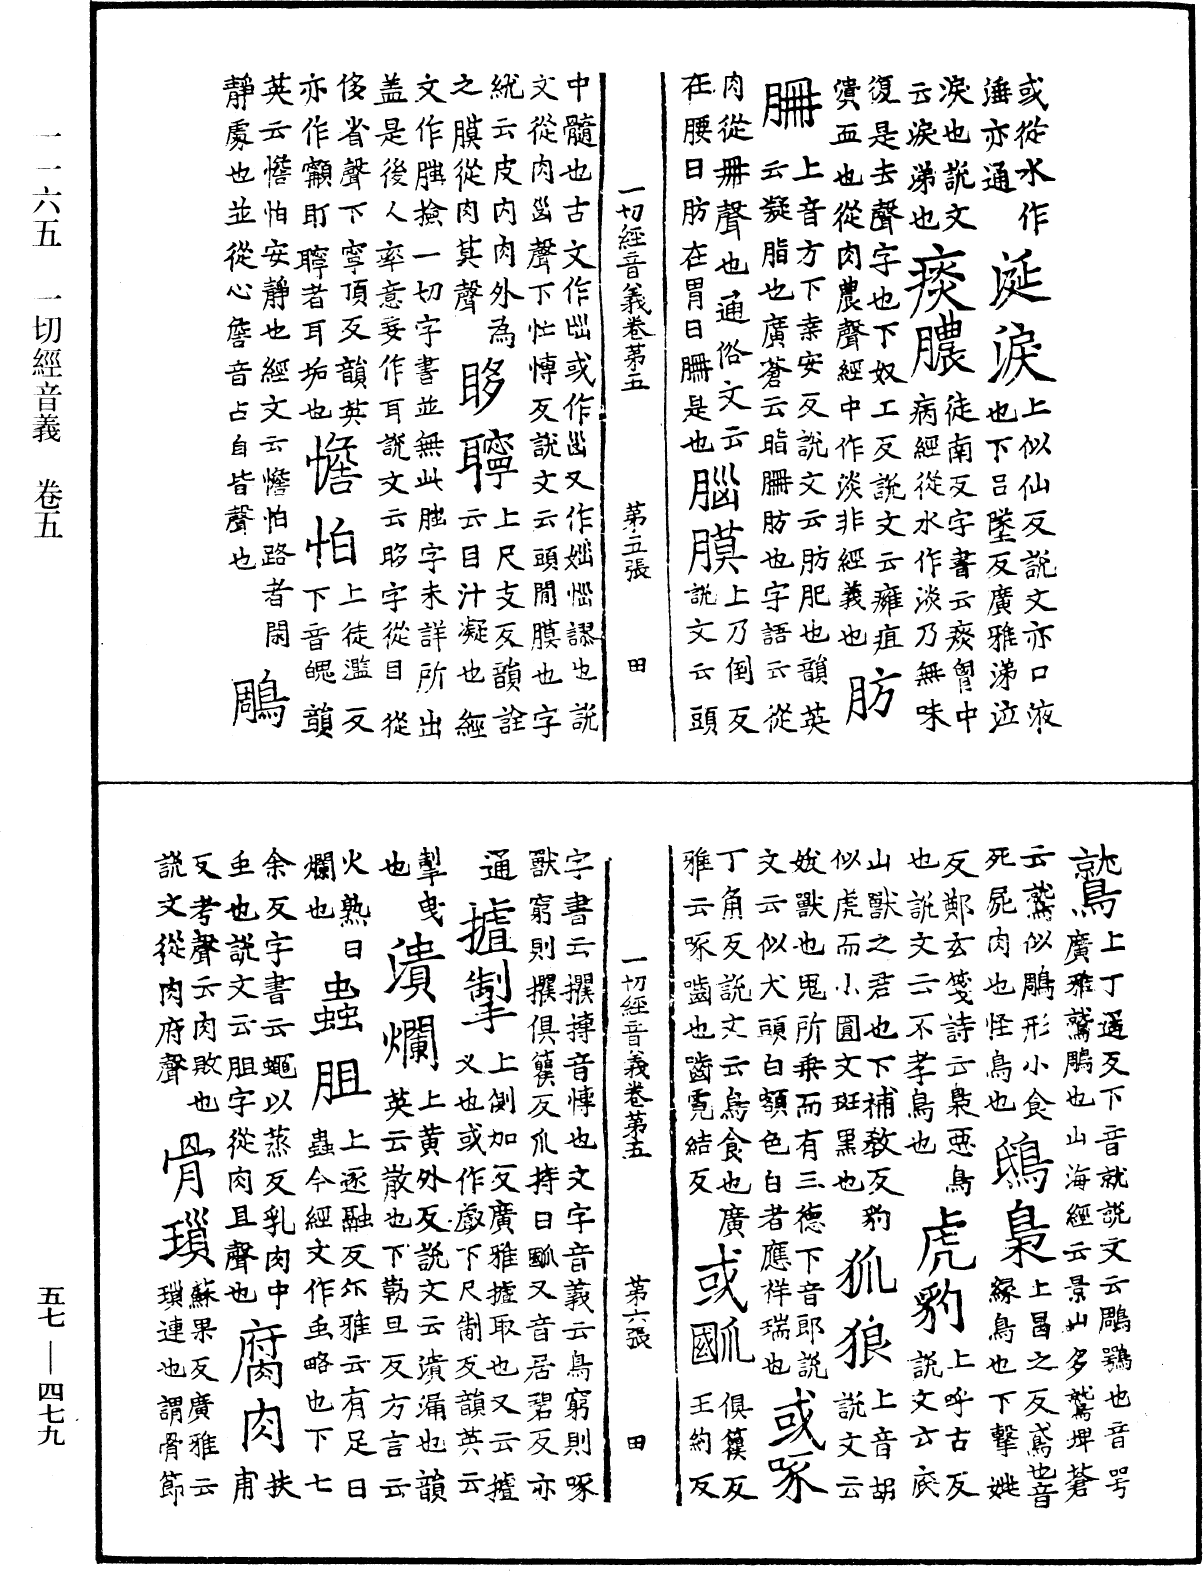 或從水作
㴂亦通
涎淚上似仙反說文亦口液
也下呂墜反廣雅涕泣
淚也說文
云淚涕也
痰膿徒南反字書云痰胷中
病經從水作淡乃無味
復是去聲字也下奴工反說文云癰疽
潰血也從肉農聲經中作淡非經義也
肪
𦙱上音方下桒安反說文云肪肥也韻英
云凝脂也廣蒼云脂𦙱肪也字語云從
肉從冊聲也通俗文云
在腰曰肪在胃曰𦙱是也
腦膜上乃倒反
說文云頭
一切經音義卷第五 第五張 田
中髓也古文作𡿺或作𡿺又作㛴惱謬也說
文從肉𡿺聲下忙慱反說文云頭閒膜也字
統云皮内肉外為
之膜從肉莫聲
眵聹上尺支反韻詮
云目汁凝也經
文作䏧撿一切字書並無此䏧字未詳所出
盖是後人率意妄作耳說文云眵字從目從
侈省聲下寧頂反韻英
亦作䫴耵聹者耳垢也
憺怕上徒濫反
下音魄韻
英云憺怕安靜也經文云憺怕路者閑
靜處也並從心詹音占自皆聲也
鵰
鷲上丁遥反下音就說文云鵰鶚也音㗁
廣雅鷲鵰也山海經云景山多鷲埤蒼
云鷲似鵰形小食
死屍肉也怪鳥也
鴟梟上昌之反鳶也音
緣鳥也下擊姚
反鄭玄箋詩云梟惡鳥
也說文云不孝鳥也
虎豹上呼古反
說文云
山獸之君也下補教反豹
似虎而小圓文斑黑也
狐狼上音胡
說文云
妖獸也鬼所乗而有三德下音郎說
文云似犬頭白頟色白者應祥瑞也
或啄
丁角反說文云鳥食也廣
雅云啄嚙也嚙霓結反
或㕟俱籰反
王約反
一切經音義卷第五 第六張 田
字書云攥搏音慱也文字音義云鳥窮則啄
獸窮則攫俱籰反爪持曰㕟又音居碧反亦
通
摣掣上側加反廣雅摣取也又云摣
义也或作戲下尺制反韻英云
掣曳
也
潰爛上黄外反說文云潰漏也韻
英云散也下勒旦反方言云
火熟曰
爛也
蟲胆上逐融反尒雅云有足曰
蟲今經文作虫略也下七
余反字書云蠅以蒸反乳肉中
虫也說文云胆字從肉且聲也
腐肉扶
甫
反考聲云肉敗也
說文從肉府聲
骨瑣蘇果反廣雅云
瑣連也謂骨節
一一六五 一切經音義 卷五
五七—四七九